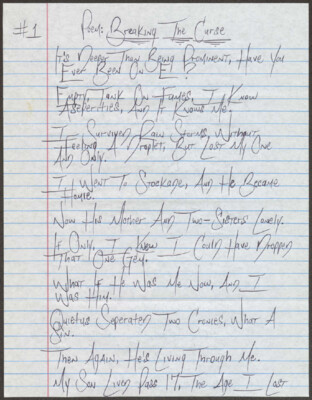 #1 Poem: Breaking The Curse
It's Deeper Than Being Prominent, Have You
Ever Been On E!?
Empty Tank On Fumes, I Know
Asperities, And It Knows Me!
I Survived Rain Storms, Without
Feeling A Droplet, But Lost My One
And Only.
I Went To Stockade, And He Became
Now His Mother And Two-Sisters Lonely.
If Only, I Knew I Could Have Dropped
That One Gem.
What If He Was Me Now, And I
Was Him.
Quietus Seperated Two Cronies, What A
Sin.
Then Again, He's Living Through Me.
My Son Lived Pass 17, The Age I Lost